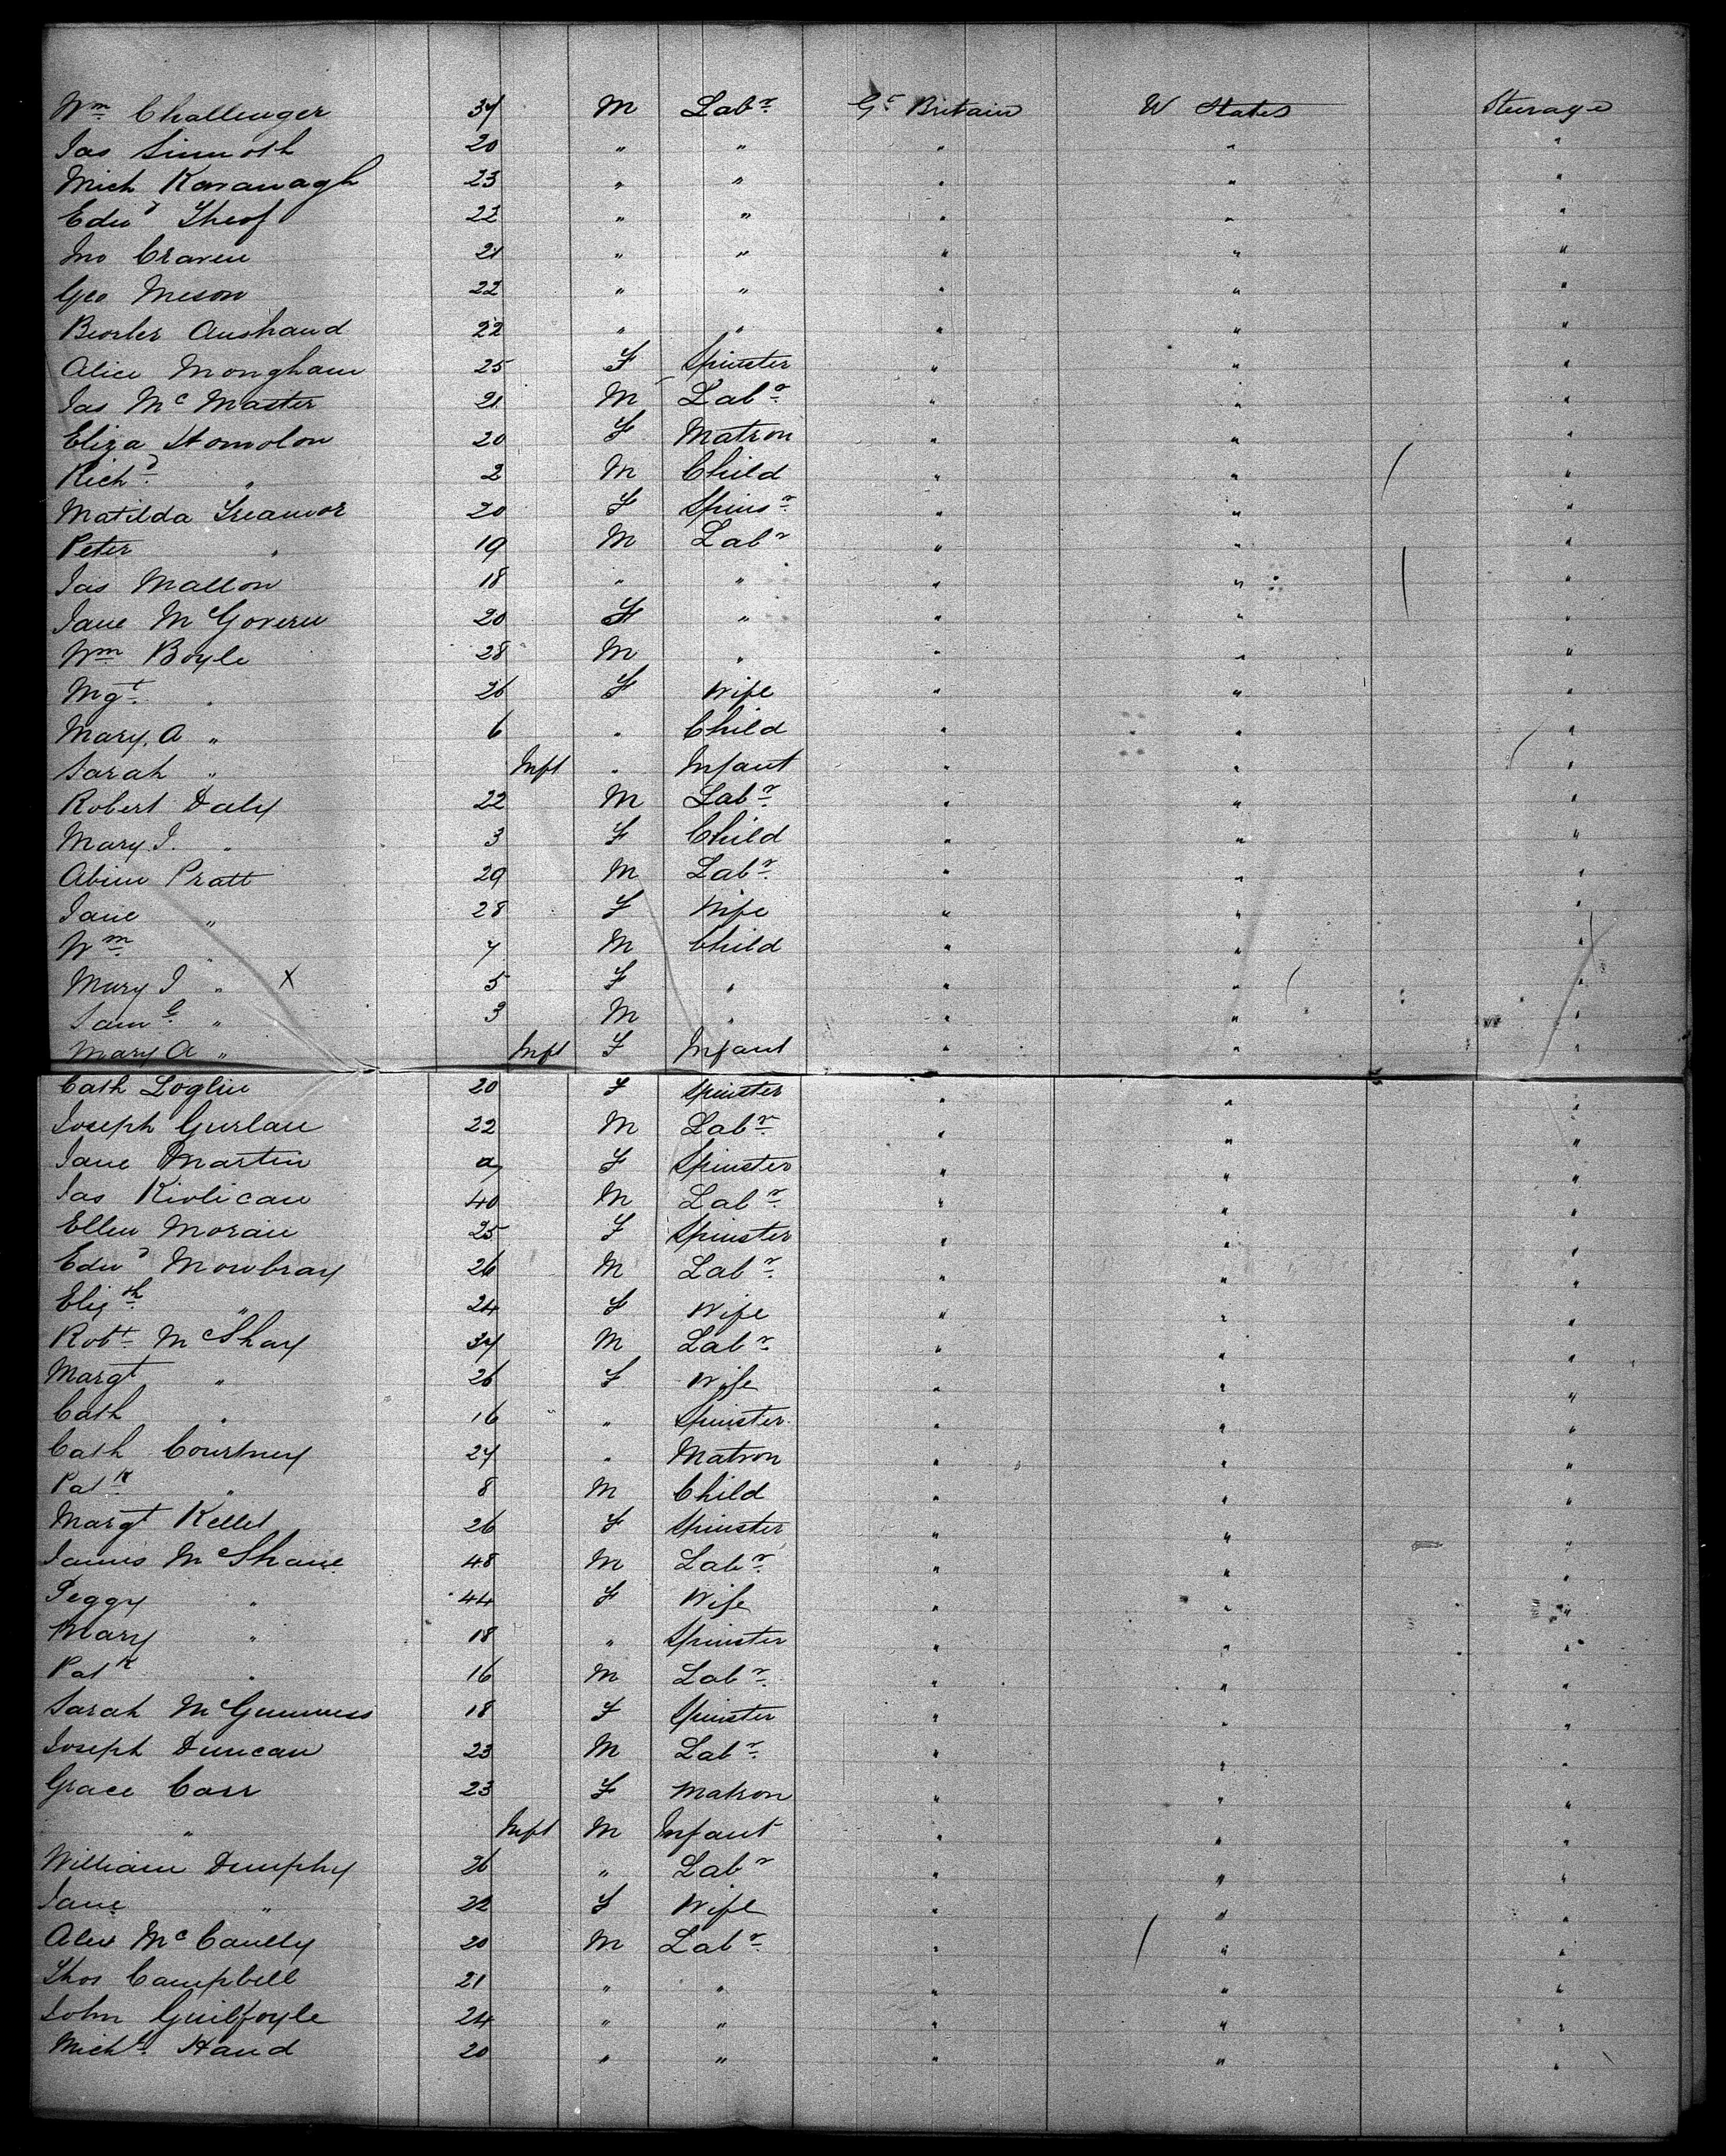 Wm Challenger 37 M Labr Gt Britain U States Steerage
Jas Sinnott 20 " " " " "
Mich Kavanagh 23 " " " " "
Edwd 22 " " " " "
Jno Craven 21 " " " " "
Geo Meson 22 " " " " "
22 " " " " "
Alice Mongham 25 F Spinster " " "
Jas Mc Master 21 M Labr " " "
Eliza 20 F Matron " " "
Richd " 2 M Child " " "
Matilda 20 F Spinsr " " "
Peter " 19 M Labr " " "
Jas Mallon 18 " " " " "
Jane McGovern 20 F " " " "
Wm Boyle 28 M " " " "
Mgt " 26 F Wife " " "
Mary. A " 6 " Child " " "
Sarah " Inft " Infant " " "
Robert Daly 22 M Labr " " "
Mary J. " 3 F Child " " "
Pratt 29 M Labr " " "
Jane " 28 F Wife " " "
Wm " 7 M Child " " "
Mary J " X 5 F " " " "
Saml " 3 M " " " "
Mary A " Inft F Infant " " "
Cath Loglin 20 F Spinster " " "
Joseph 22 M Labr " " "
Jane Martin F Spinster " " "
Jas 40 M Labr " " "
Ellen Moran 25 F Spinster " " "
Edwd Mowbray 26 M Labr " " "
Elizth " 24 F Wife " " "
Robt McShay 37 M Labr " " "
Margt " 26 F Wife " " "
Cath " 16 " Spinster " " "
Cath Courtney 27 " Matron " " "
Patk " 8 M Child " " "
Margt Kellet 26 F Spinster " " "
James McShane 48 M Labr " " "
Peggy " 44 F Wife " " "
Mary " 18 " Spinster " " "
Patk " 16 M Labr " " "
Sarah McGuinness 18 F Spinster " " "
Joseph Duncan 23 M Labr " " "
Grace Carr 23 F Matron " " "
" Inft M Infant " " "
William Dumphy 26 " Labr " " "
Jane " 22 F Wife " " "
Alex McCaully 20 M Labr " " "
Thos Campbell 21 " " " " "
John Guilfoyle 24 " " " " "
Michl Hand 20 " " " " "